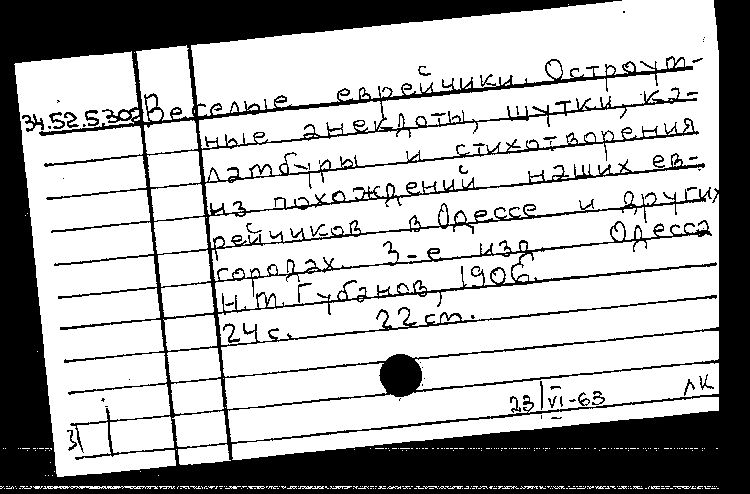 34.52.5.302 Веселые еврейчики. Остроум-
ные анекдоты, шутки, ка-
ламбуры и стихотворения
из похождений наших ев-
рейчиков в Одессе и других
городах. 3-е изд. Одесса
Н.Т. Губанов, 1906.
24 с. 22 ст.
23/VI-63 ЛК
31